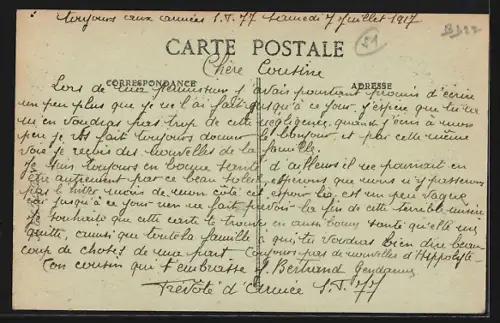 Toujours aux armées S.P. 77 Samedi 7 Juillet 1917
51
CARTE POSTALE
Chère Cousine
CORRESPONDANCE
ADRESSE
Lors de ma permission j'avais pourtant promis d'écrire
un peu plus que je ne l'ai fait jusqu'à ce jour, j'espère que tu ne
m'en voudras pas trop de cette négligence, quand j'écris à mon
père je lui fait toujours donner le bonjour, et par cette même
voie je reçois des nouvelles de la famille.
Je suis toujours en bonne santé, d'ailleurs il ne pourrait en
être autrement par ce beau soleil, espérons que nous n'y passerons
pas le hiver moins de mon côté cet espoir là est un peu vague
car jusqu'à ce jour rien ne fait prévoir la fin de cette terrible misère
Je souhaite que cette carte te trouve en aussi bonne santé qu'elle me
quitte, ainsi que toute la famille à qui tu voudras bien dire beau-
coup de choses de ma part. Toujours pas de nouvelles d'Hippolyte
Ton cousin qui t'embrasse J. Bertrand Gendarme
Prévôté d'Armée S.P. 77